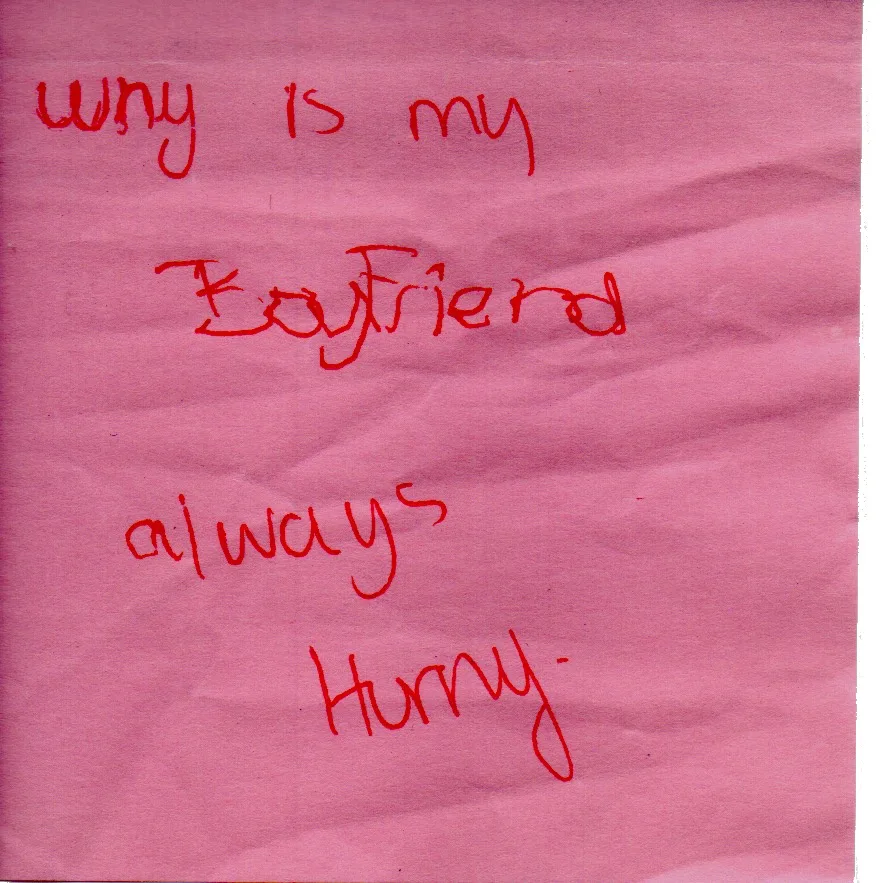 why is my
BoyFriend
always
Hurny.